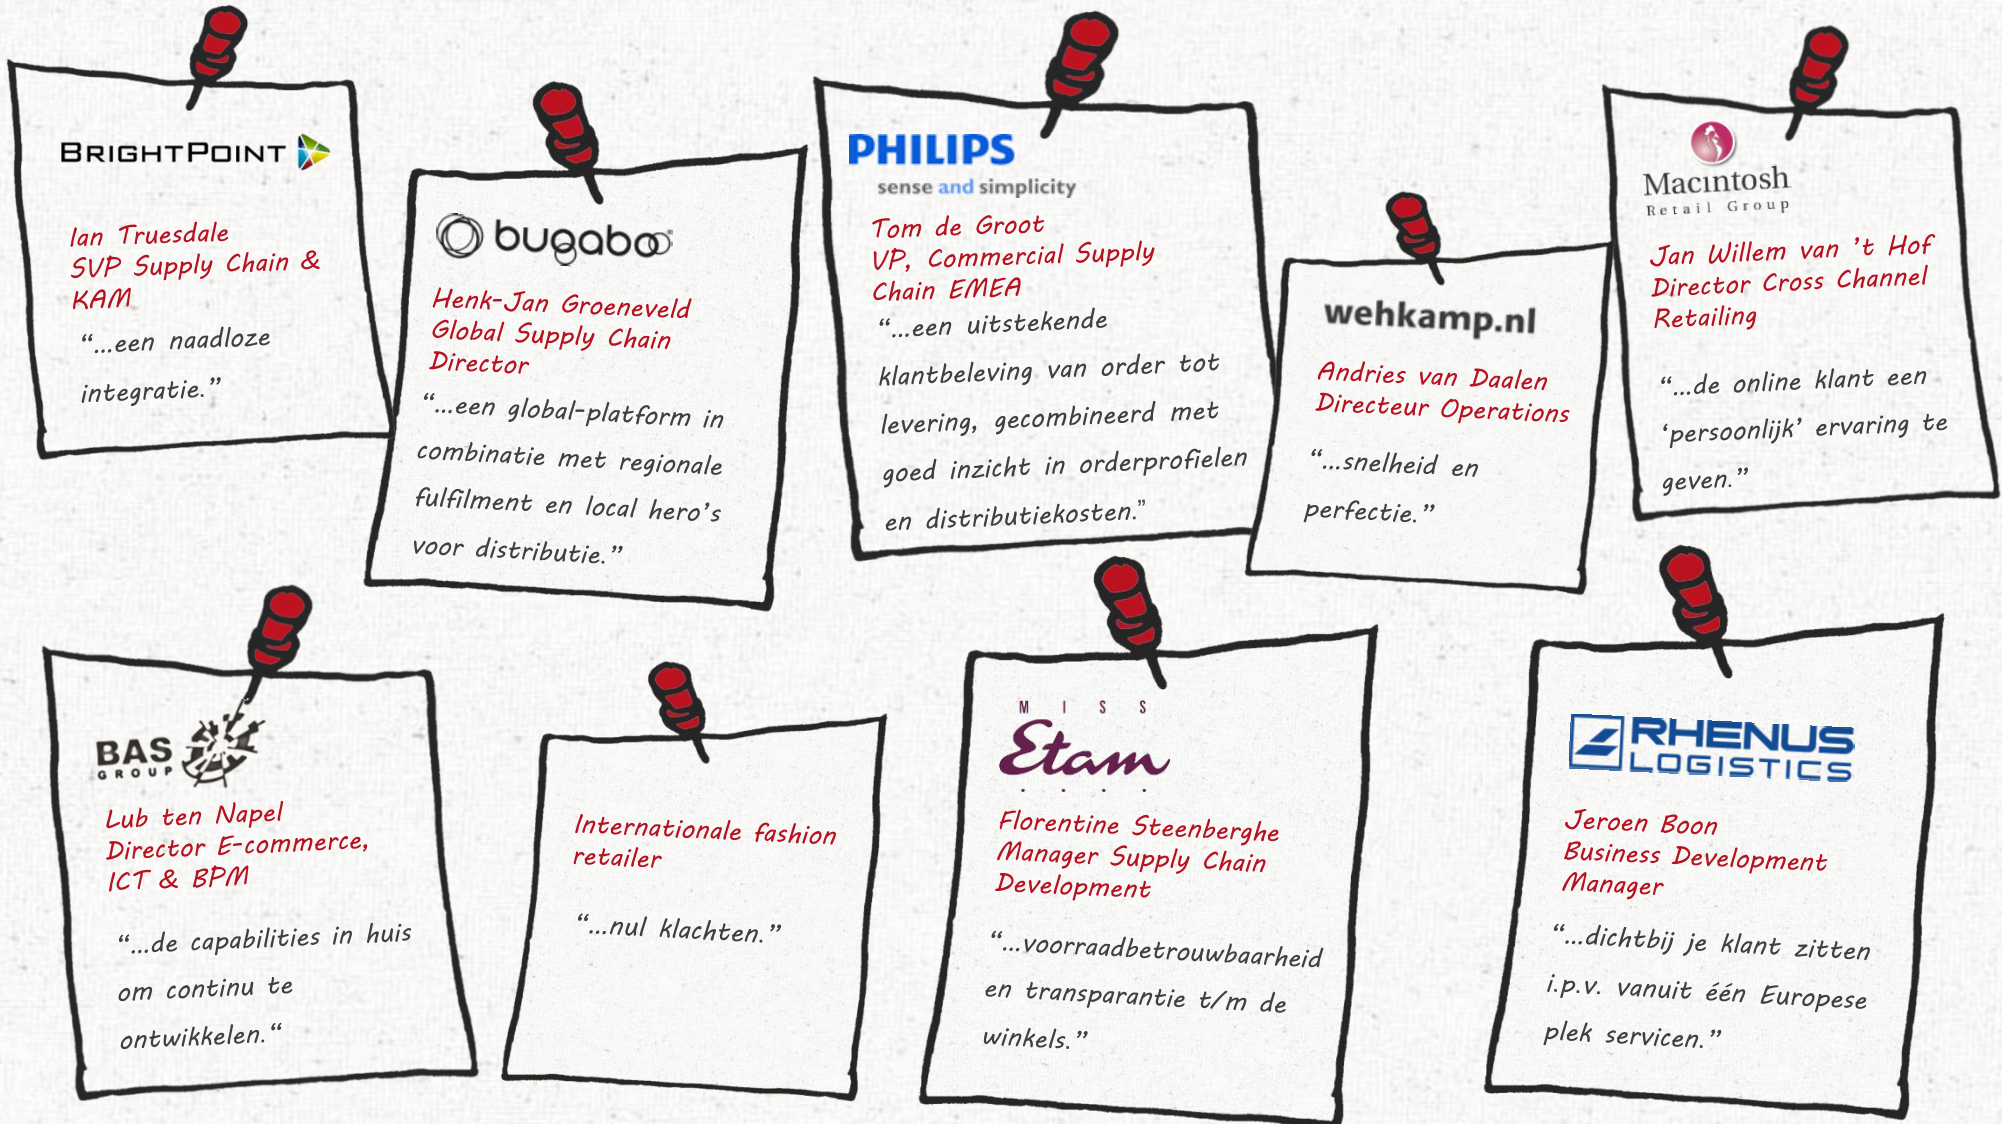 BRIGHTPOINT
Ian Truesdale
SVP Supply Chain &
KAM
“...een naadloze
integratie.”
bugaboo
Henk-Jan Groeneveld
Global Supply Chain
Director
“...een global-platform in
combinatie met regionale
fulfilment en local hero’s
voor distributie.”
PHILIPS
sense and simplicity
Tom de Groot
VP, Commercial Supply
Chain EMEA
“...een uitstekende
klantbeleving van order tot
levering, gecombineerd met
goed inzicht in orderprofielen
en distributiekosten.”
wehkamp.nl
Andries van Daalen
Directeur Operations
“...snelheid en
perfectie.”
Macintosh
Retail Group
Jan Willem van ’t Hof
Director Cross Channel
Retailing
“...de online klant een
‘persoonlijk’ ervaring te
geven.”
BAS
GROUP
Lub ten Napel
Director E-commerce,
ICT & BPM
“...de capabilities in huis
om continu te
ontwikkelen.“
Internationale fashion
retailer
“...nul klachten.”
MISS
Etam
Florentine Steenberghe
Manager Supply Chain
Development
“...voorraadbetrouwbaarheid
en transparantie t/m de
winkels.”
RHENUS
LOGISTICS
Jeroen Boon
Business Development
Manager
“...dichtbij je klant zitten
i.p.v. vanuit één Europese
plek servicen.”